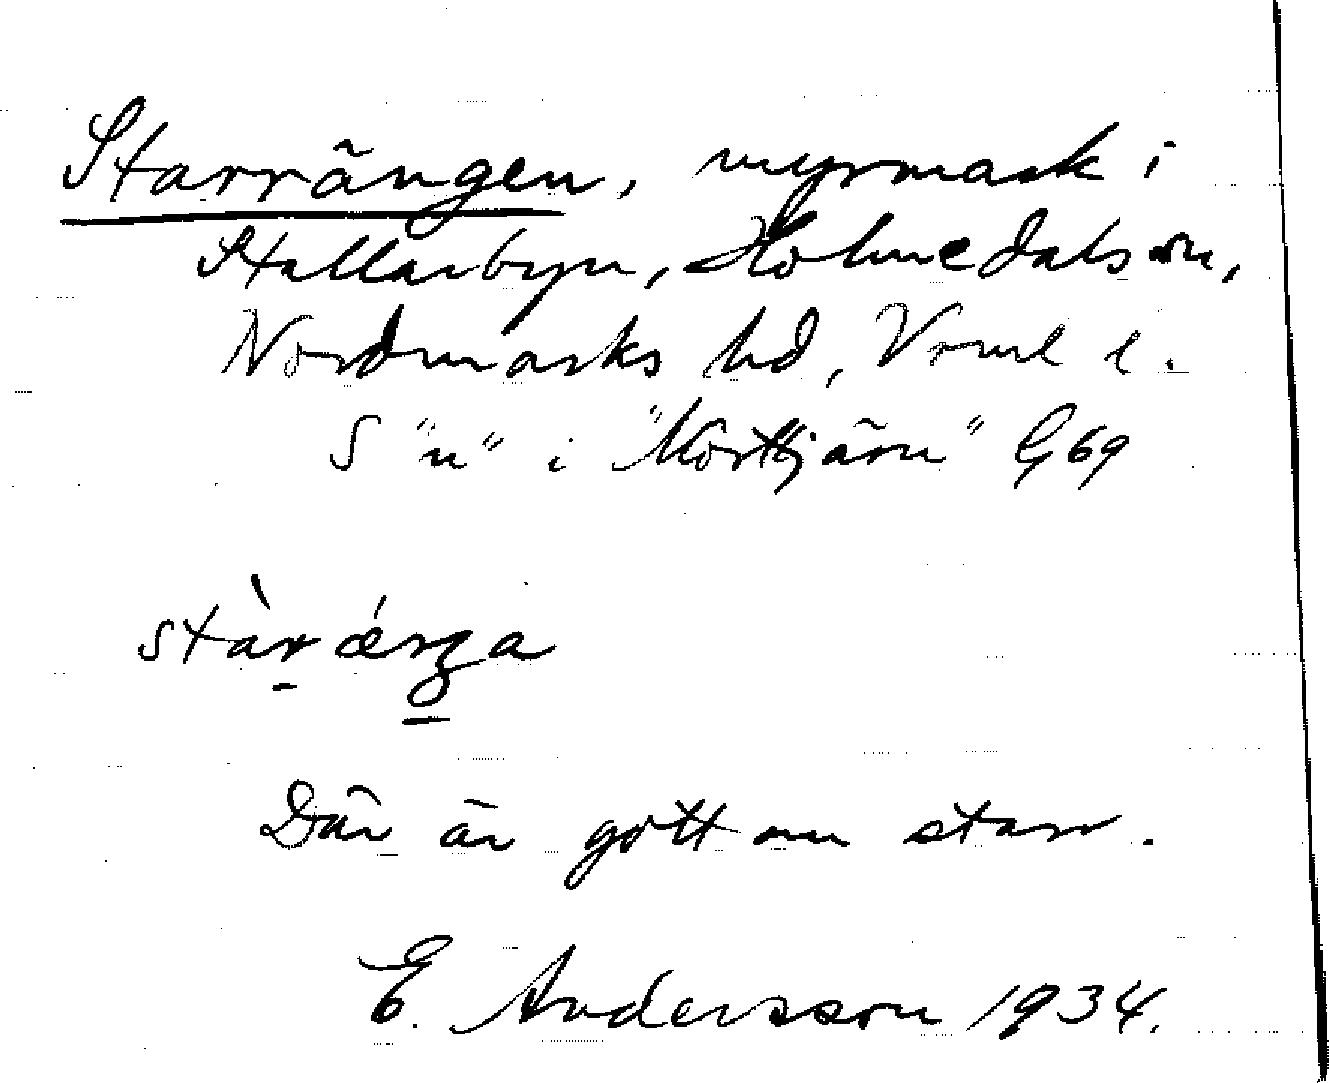 Starrängen, myrmark i
Stallarbyn, Holmedals sn,
Nordmarks hd, Vrml l.
S "n" i "Norttjärn" G69
stàrǽŋa
Där är gott om starr.
E. Andersson 1934.